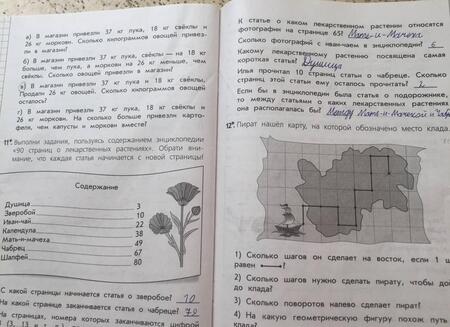 а) В магазин привезли 37 кг лука, 18 кг свёклы и
26 кг моркови. Сколько килограммов овощей привез-
ли в магазин?
б) В магазин привезли 37 кг лука, свёклы — на 18 кг
больше, чем лука, а моркови на 26 кг меньше, чем
свёклы. Сколько овощей привезли в магазин?
в) В магазин привезли 37 кг лука и 18 кг свёклы,
Продали 26 кг овощей. Сколько килограммов овощей
осталось?
г) В магазин привезли 37 кг лука, 18 кг свёклы и
26 кг моркови. На сколько больше привезли карто-
феля, чем капусты и моркови вместе?
11. Выполни задания, пользуясь содержанием энциклопедии
«90 страниц о лекарственных растениях». Обрати вни-
мание, что каждая статья начинается с новой страницы!
Содержание
Душица 3
Зверобой 10
Иван-чай 22
Календула 38
Мать-и-мачеха 49
Чабрец 67
Шалфей 80
С какой страницы начинается статья о зверобое? 10
На какой странице заканчивается статья о чабреце? 79
На страницах, номера которых заканчиваются цифрой
К статье о каком лекарственном растении относятся
фотографии на странице 65? Мать-и-Мачеха
Сколько фотографий с иван-чаем в энциклопедии? 6
Какому лекарственному растению посвящена самая
короткая статья? Душица
Илья прочитал 10 страниц статьи о чабреце. Сколько
страниц этой статьи ему осталось прочитать?
Если бы в энциклопедии была статья о подорожнике,
то между статьями о каких лекарственных растениях
она располагалась бы? Между Мать-и-Мачехой и
12. Пират нашёл карту, на которой обозначено место клада.
1) Сколько шагов он сделает на восток, если 1 ш
равен
2) Сколько шагов нужно сделать пирату, чтобы до
до клада?
3) Сколько поворотов налево сделает пират?
4) На какую геометрическую фигуру похож путь
клада?